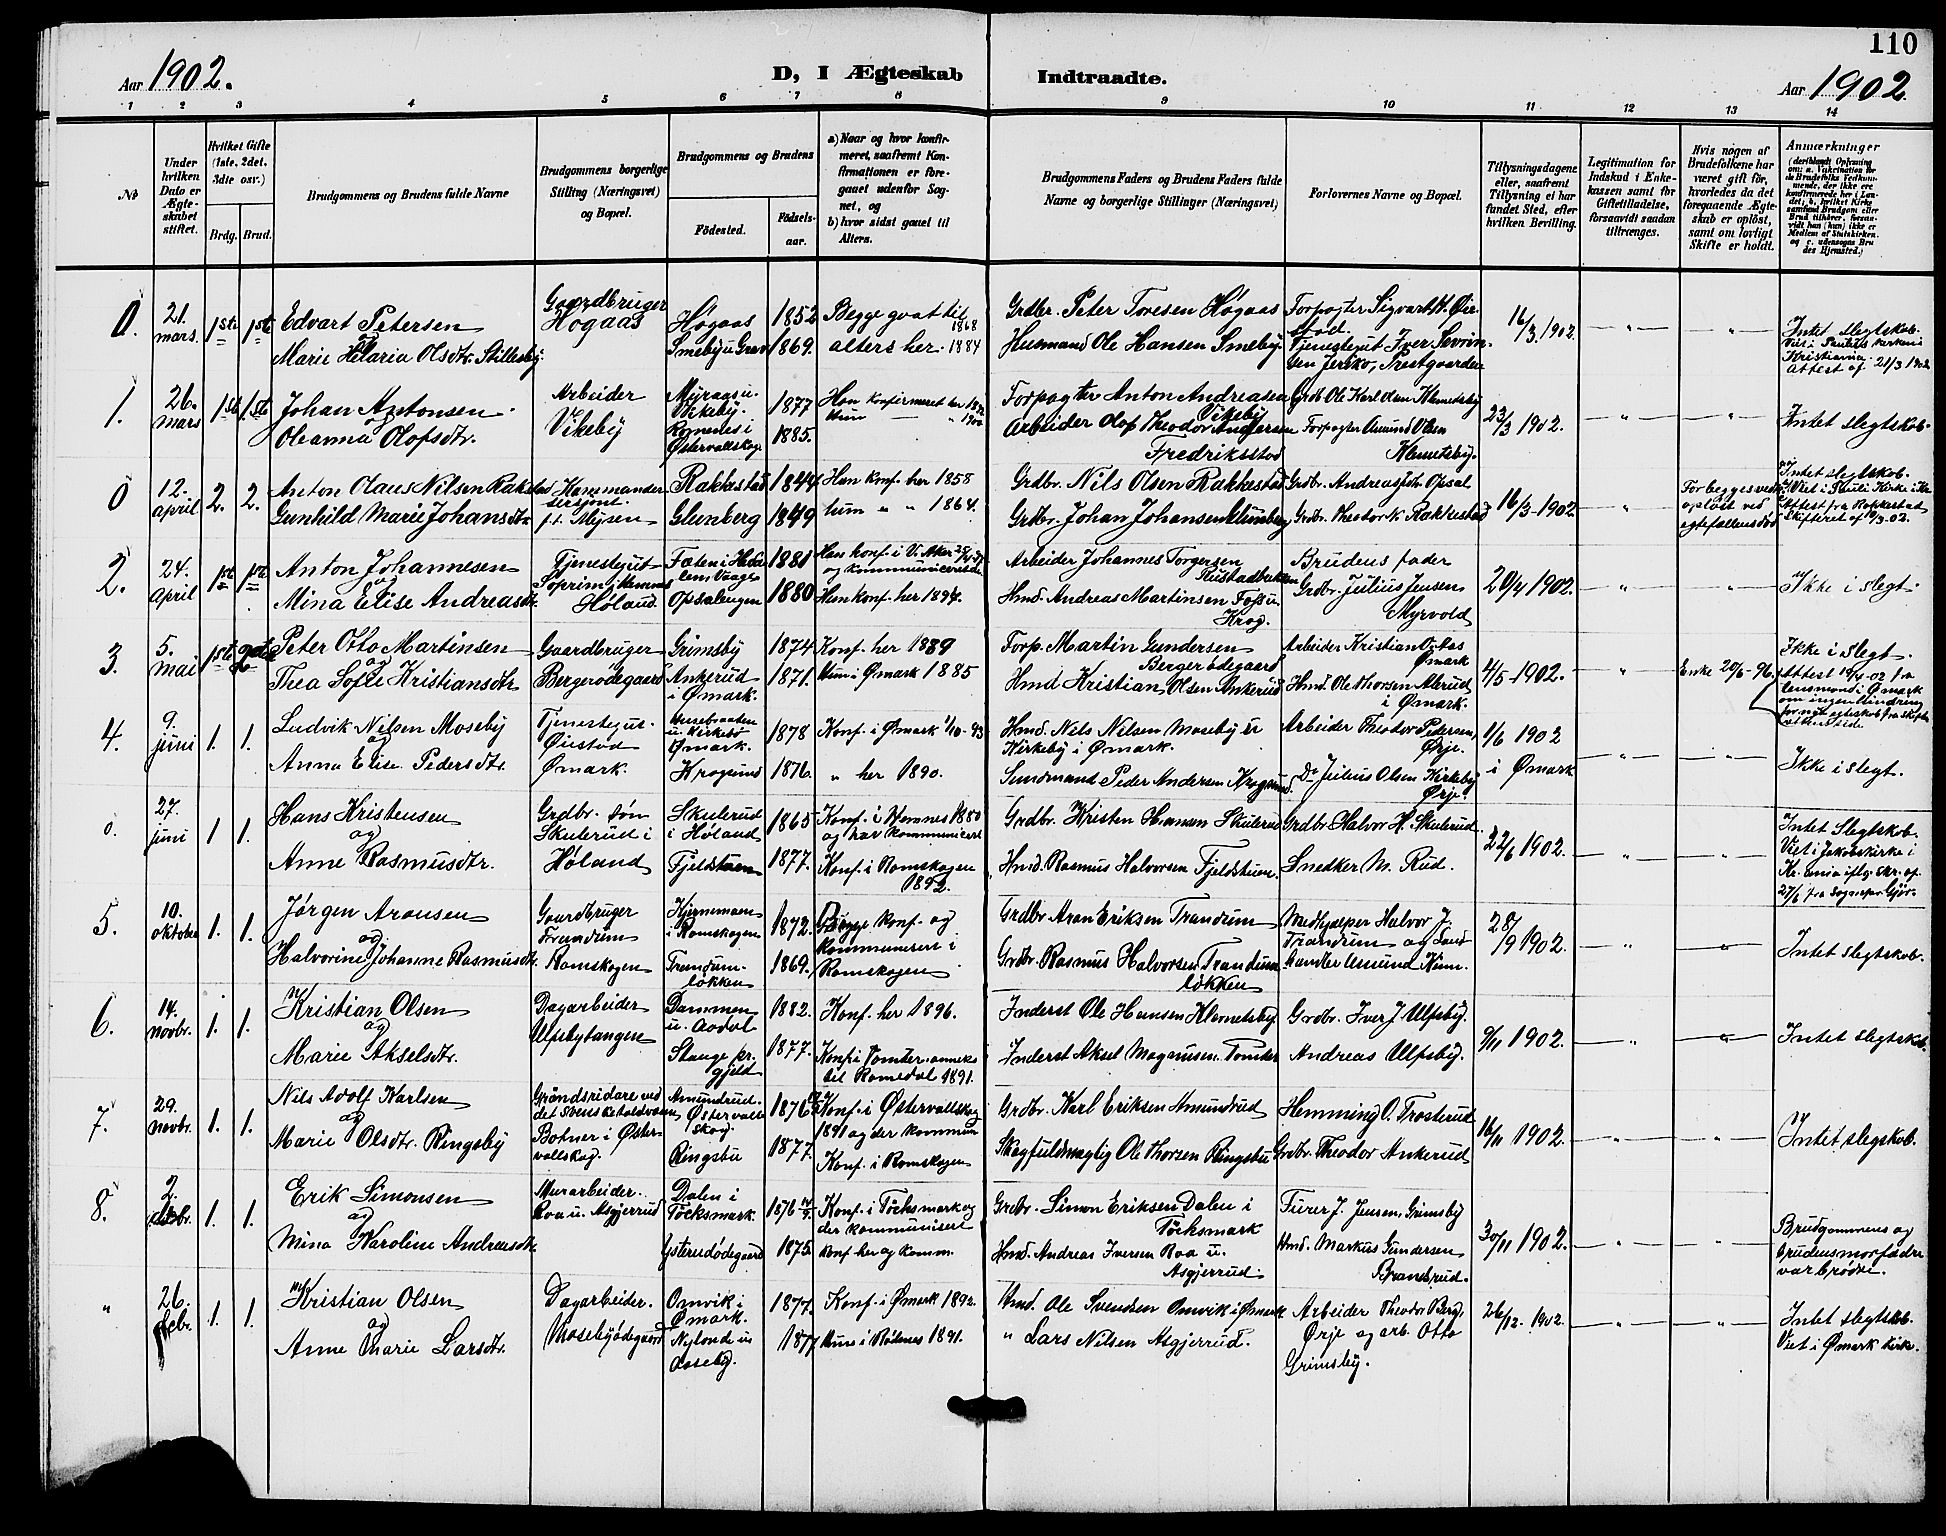 110
Aar 1902.
D, I Ægteskab Indtraadte.
Aar 1902.
1 2 3 4 5 6 7 8 9 10 11 12 13 14
No
Under hvilken Dato er Ægteskabet stiftet.
Hvilket Gifte (1ste, 2det, 3die osv.)
Brdg. Brud.
Brudgommens og Brudens fulde Navne
Brudgommens borgerlige Stilling (Næringsvei) og Bopæl.
Brudgommens og Brudens
Födested.
Födselsaar.
a) Naar og hvor konfirmeret, saafremt Konfirmationen er foregaaet udenfor Sognet, og
b) hvor sidst gaaet til Alters.
Brudgommens Faders og Brudens Faders fulde Navne og borgerlige Stillinger (Næringsvei)
Forlovernes Navne og Bopæl.
Tillysningsdagene eller, saafremt Tillysning ei har fundet Sted, efter hvilken Bevilling.
Legitimation for Indskud i Enkekassen samt for Giftetilladelse, forsaavidt saadan tiltrænges.
Hvis nogen af Brudefolkene har været gift för, hvorledes da det foregaaende Ægteskab er oplöst, samt om lovligt Skifte er holdt.
Anmærkninger
0. 21. mars 1ste 1ste
Edvart Petersen
og
Marie Hilaria Olsdtr. Stillesby
Gaardbruger
Høgaas
Høgaas 1852
Smeby u Grav 1869.
Begge gaat til
alters her. 1868 1884
Grdbr. Peter Toresen Høgaas
Husmand Ole Hansen Smeby.
Forpagter Sigvart H. Øierstad.
Tjenestegut Iver Sevrinsen Jeriko, Prestgaarden
16/3 1902.
Intet slegtskab.
Viet i Paulus kirken i
Kristiania
Attest af 21/3 1902
1. 26. mars 1ste 1ste
Johan Antonsen
og
Oleanna Olofsdtr.
Arbeider
Vikeby
Vikeby. 1877
Østervallskog 1885.
Han konfirmeret her
Hun 1900
Forpagter Anton Andreasen
Vikeby
Arbeider Olof Theodor Andersen
Fredriksstad
Grdb Ole Karl Olsen Klemetsby
Forpagter Amund Olsen
Klemetsby.
23/3 1902.
Intet slegtskab.
0 12. april 2. 2.
Anton Olaus Nilsen Rakkestad
Gunhild Marie Johansdtr
sergent.
f.t. Mysen
Rakkestad 1844
Glenberg 1849
Han konf. her 1858
hun " " 1864.
Grdbr. Nils Olsen Rakkestad
Grdbr. Johan Johansen Glenberg
Grdbr. Andreas Opsal
Grdbr. Theodor N. Rakkestad
16/3-1902.
opløst ved
egtefællens død
Intet slegtskab.
Viet i Pauli Kirke i Kr.
Attest fra Rakkestad
2. 24. april 1ste 1ste
Anton Johannesen
og
Mina Elise Andreasdtr.
Tjenestegut
Høland.
1881
Opsalengen 1880
Han konf. i V. Aker
og kommuniceret
Hun konf. her 1894.
Arbeider Johannes Torgersen
Rustadbakken
Hmd. Andreas Martinsen Foss u.
Krog.
Brudens fader
Grdbr. Julius Jensen
Myrvold
20/4 1902.
Ikke i slegt.
3. 5. mai 1ste 2det
Peter Otto Martinsen
og
Thea Sofie Kristiansdtr
Gaardbruger
Bergerødegaard
Grimsby 1874
Ankerud
i Ømark. 1871.
Konf. her 1889
Hun i Ømark 1885
Forp. Martin Gundersen
Bergerødegaard
Hmd Kristian Olsen Ankerud
Arbeider Kristian
Ømark
Hmd. Ole Thorsen Alerud
i Ømark.
4/5-1902.
Enke 20/5-96.
Ikke i slegt.
4. 9. juni 1. 1.
Ludvik Nilsen Moseby
og
Anna Elise Pedersdtr.
Tjenestegut.
Øiestad
Ømark.
u. Kirkebø
Ømark. 1878
Krogsund 1876.
Konf. i Ømark 1/10-93
" her 1890.
Hmd. Nils Nilsen Moseby u
Kirkeby i Ømark.
Sundmand Peder Andersen Krogsund.
Arbeider Theodor Pedersen,
Ørje.
Do Julius Olsen Kirkeby
Ørje.
1/6 1902
i Ømark
Ikke i slegt.
0. 27. juni 1 1.
Hans Kristensen
og
Anne Rasmusdtr.
Grdbr. søn
Skulerud i
Høland
Skulerud
i Høland 1865
Fjeldstuen 1877.
Konf. i Hemnes 1880
og har kommuniceret
Konf. i Rømskogen
1892.
Grdbr. Kristen Hansen Skulerud
Hmd. Rasmus Halvorsen Fjeldstuen.
Grdbr. Halvor H. Skulerud.
Snedker M. Rud.
22/6 1902.
Intet Slegtskab.
Viet i Jakobskirke i
27/6
5. 10. oktober 1. 1.
Jørgen Aronsen
og
Halvorine Johanne Rasmusdtr.
Gaardbruger
Trandum
Rømskogen
i Rømskogen 1872.
Trandumløkken 1869.
Begge konf. og
kommunisert i
Rømskogen
Grdbr Aron Eriksen Trandum
Grdbr. Rasmus Halvorsen Trandumløkken
Medhjælper Halvor J.
Trandum og Landhandler Amund
28/9 1902.
Intet slegtskab.
6. 14. novbr. 1. 1.
Kristian Olsen
og
Marie Akselsdtr.
Dagarbeider
Ulfsbytangen
Dammen 1882.
Stange prgjeld 1877.
Konf. her 1896.
Konf. i Tomter anneks
til Romedal 1891.
Inderst Ole Hansen Klemetsby
Inderst Aksel Magnusen. Tomter
Grdbr. Iver J. Ulfsby.
Andreas Ulfsby.
9/11 1902.
Intet slegtskab.
7. 29. novbr. 1. 1.
Nils Adolf Karlsen
og
Marie Olsdtr. Ringsby
Gränsridare ved
det Svenske toldvæsen
Botner i Østervallskog.
Amundrud.
Østervallskog 1876
Ringsbu 1877.
Konf. i Østervallskog
1891 og der kommun
Konf. i Rømskogen
Grdbr. Karl Eriksen Amundrud
Skogfuldmægtig Ole Thorsen Ringsbu
Hemming O. Trosterud
Grdbr. Theodor Ankerud
16/11 1902.
Intet slegskab.
8. 2. debr. 1. 1.
Erik Simonsen
og
Mina Karoline Andreasdtr.
Murarbeider.
Roa u. Asgjerrud
Dalen i
Töcksmark. 1876
1875.
Konf. i Töcksmark og
der kommunisert
Konf her og komm.
Grdbr. Simon Eriksen Dalen i
Töcksmark
Hmd. Andreas Iversen Roa u.
Asgjerrud.
Furer J. Jensen, Grimsby
Hmd. Markus Gundersen
Brandsrud.
30/11 1902.
Brudgommens og
brudens morfædre
var brødre.
" 26. debr. 1. 1.
Kristian Olsen
og
Anne Marie Larsdtr.
Dagarbeider.
Mosebyødegaard
Omvik i
Ømark. 1877.
Nylond u
1877
Konf. i Ømark 1892.
Hun i Rödenes 1891.
Hmd. Ole Svendsen Omvik i Ømark
" Lars Nilsen Asgjerrud.
Arbeider Theodor Berg,
Ørje og arb. Otto
Grimsby.
26/12. 1902.
Intet slegtskab.
Viet i Ømark kirke.